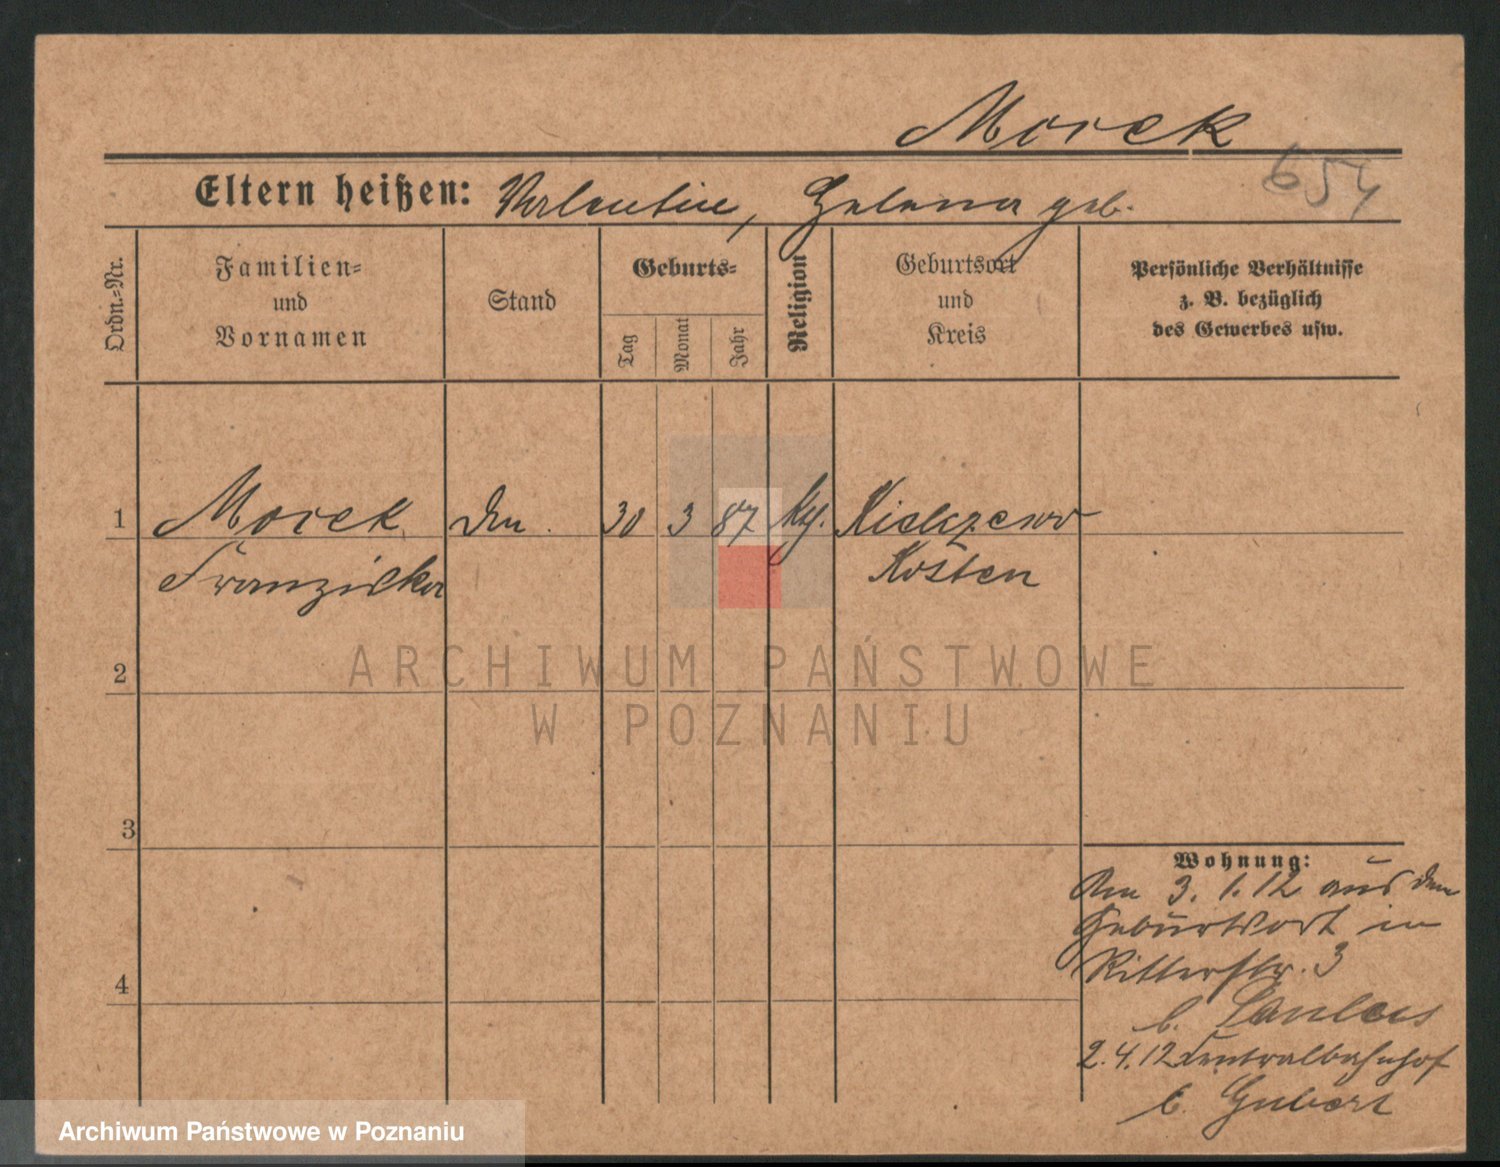 Morek
654
Eltern heißen: Valentin, Helena geb.
Ordn.-Nr.
Familien-
und
Vornamen
Stand
Geburts-
Tag
Monat
Jahr
Religion
Geburtsort
und
Kreis
Persönliche Verhältnisse
z. B. bezüglich
des Gewerbes usw.
1 Morek 30 3 87 Kielczewo
Franziska Kosten
ARCHIWUM PAŃSTWOWE
W POZNANIU
2
3
4
Wohnung:
Am 3. 1. 12 aus dem
Geburtsort in
Ritterstr. 3
b.
2. 4. 12 Centralbahnhof
b.
Archiwum Państwowe w Poznaniu